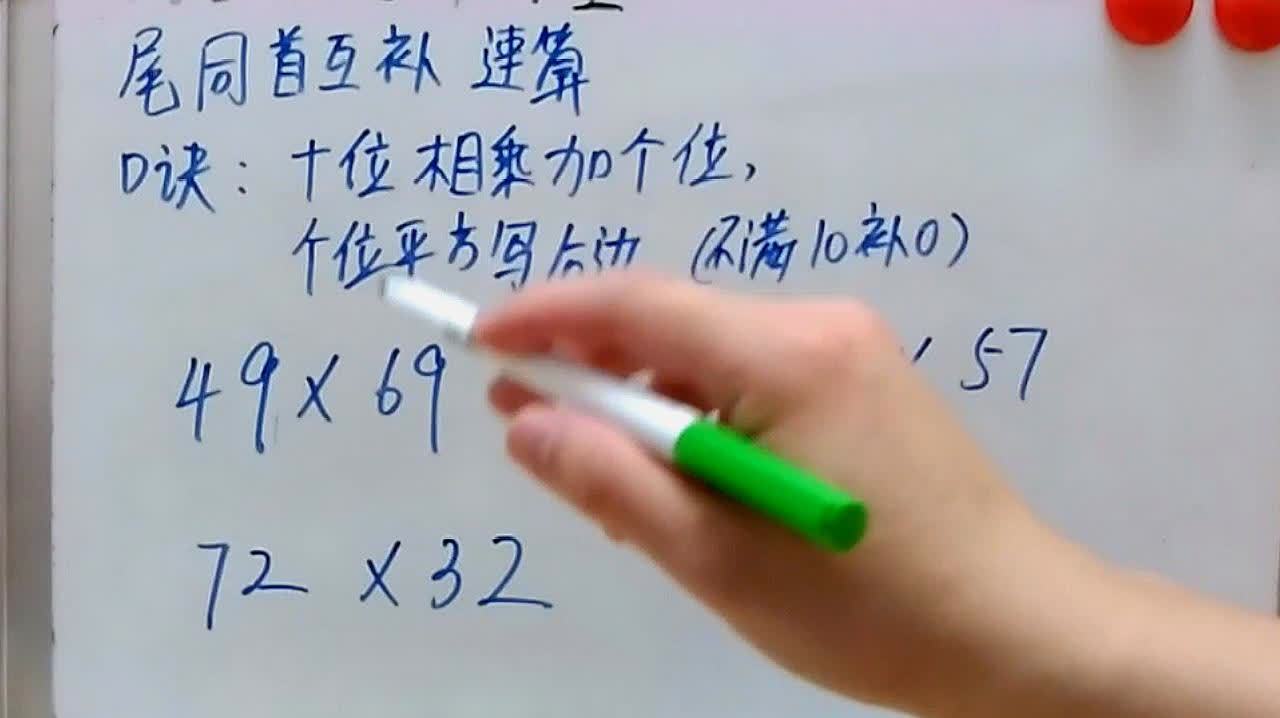 尾同首互补 速算
口诀：十位相乘加个位，
个位平方写右边（不满10补0）
49×69
× 57
72×32